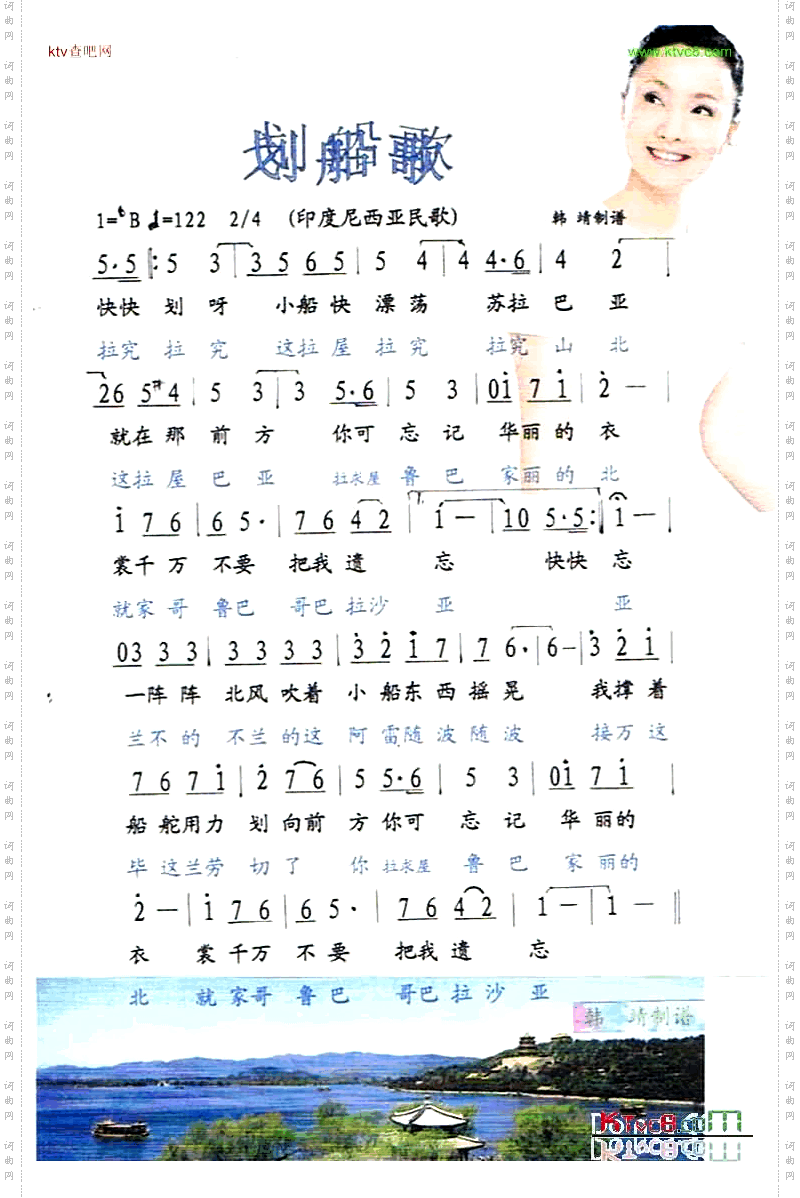 ktv查吧网
www.ktvc8.com
划船歌
1=ᵇB ♩=122 2/4 (印度尼西亚民歌) 韩 靖制谱
5·5 |: 5 3 | 3 5 6 5 | 5 4 | 4 4·6 | 4 2 |
快快 划 呀 小船 快 漂 荡 苏拉 巴 亚
拉究 拉 究 这拉 屋 拉 究 拉究 山 北
26 5#4 | 5 3 | 3 5·6 | 5 3 | 0i 7i | 2 — |
就在 那 前 方 你可 忘 记 华丽 的 衣
这拉 屋 巴 亚 拉求屋 鲁 巴 家丽 的 北
i 76 | 6 5· | 76 42 | 1 — | 10 5·5 :| 1 —
裳 千 万 不要 把我 遗 忘 快快 忘
就家 哥 鲁巴 哥巴 拉沙 亚 亚
03 33 | 33 33 | 32 i7 | 7 6· | 6 — | 3 2i |
一阵 阵 北风 吹着 小 船东 西 摇 晃 我撑 着
兰不 的 不兰 的这 阿 雷随 波 随 波 接万 这
76 7i | 2 76 | 5 5·6 | 5 3 | 0i 7i |
船 舵用力 划 向前 方 你可 忘 记 华 丽的
毕 这兰劳 切 了 你 拉求屋 鲁 巴 家 丽的
2 — | i 76 | 65· | 76 42 | 1 — | 1 — ||
衣 裳 千万 不 要 把我 遗 忘
北 就 家哥 鲁 巴 哥巴 拉 沙 亚
韩 靖制谱
KTVC8.com
词曲网